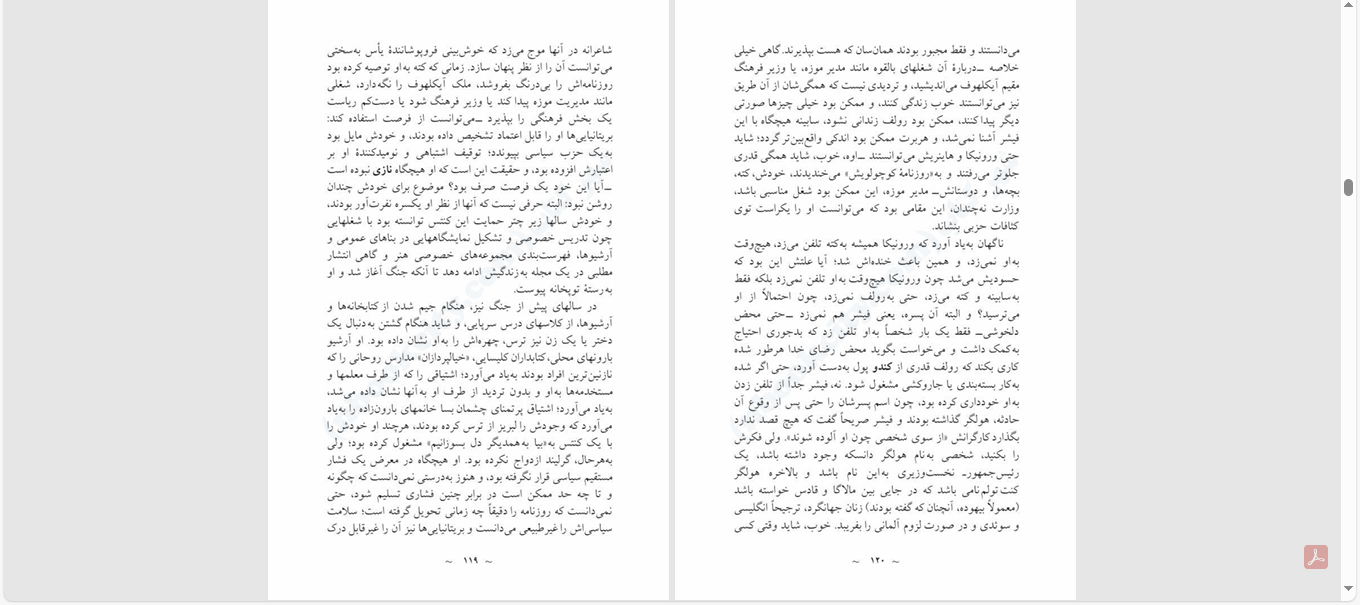 شاعرانه در آنها موج می‌زد که خوش‌بینی فروپوشانندهٔ یأس به‌سختی
می‌توانست آن را از نظر پنهان سازد. زمانی که کته به‌او توصیه کرده بود
روزنامه‌اش را بی‌درنگ بفروشد، ملک آیکلهوف را نگه‌دارد، شغلی
مانند مدیریت موزه پیدا کند یا وزیر فرهنگ شود یا دست‌کم ریاست
یک بخش فرهنگی را بپذیرد ــ‌می‌توانست از فرصت استفاده کند:
بریتانیایی‌ها او را قابل اعتماد تشخیص داده بودند، و خودش مایل بود
به‌یک حزب سیاسی بپیوندد؛ توقیف اشتباهی و نومیدکنندهٔ او بر
اعتبارش افزوده بود، و حقیقت این است که او هیچگاه نازی نبوده است
ــ‌آیا این خود یک فرصت صرف بود؟ موضوع برای خودش چندان
روشن نبود: البته حرفی نیست که آنها از نظر او یکسره نفرت‌آور بودند،
و خودش سالها زیر چتر حمایت این کنتس توانسته بود با شغلهایی
چون تدریس خصوصی و تشکیل نمایشگاههایی در بناهای عمومی و
آرشیوها، فهرست‌بندی مجموعه‌های خصوصی هنر و گاهی انتشار
مطلبی در یک مجله به‌زندگیش ادامه دهد تا آنکه جنگ آغاز شد و او
به‌رستهٔ توپخانه پیوست.
در سالهای پیش از جنگ نیز، هنگام جیم شدن از کتابخانه‌ها و
آرشیوها، از کلاسهای درس سرپایی، و شاید هنگام گشتن به‌دنبال یک
دختر یا یک زن نیز ترس، چهره‌اش را به‌او نشان داده بود. او آرشیو
بارونهای محلی، کتابداران کلیسایی، «خیالپردازان» مدارس روحانی را که
نازنین‌ترین افراد بودند به‌یاد می‌آورد؛ اشتیاقی را که از طرف معلمها و
مستخدمه‌ها به‌او و بدون تردید از طرف او به‌آنها نشان داده می‌شد،
به‌یاد می‌آورد؛ اشتیاق پرتمنای چشمان بسا خانمهای بارون‌زاده را به‌یاد
می‌آورد که وجودش را لبریز از ترس کرده بودند، هرچند او خودش را
با یک کنتس به‌«بیا به‌همدیگر دل بسوزانیم» مشغول کرده بود؛ ولی
به‌هرحال، گرلیند ازدواج نکرده بود. او هیچگاه در معرض یک فشار
مستقیم سیاسی قرار نگرفته بود، و هنوز به‌درستی نمی‌دانست که چگونه
و تا چه حد ممکن است در برابر چنین فشاری تسلیم شود، حتی
نمی‌دانست که روزنامه را دقیقاً چه زمانی تحویل گرفته است؛ سلامت
سیاسی‌اش را غیرطبیعی می‌دانست و بریتانیایی‌ها نیز آن را غیرقابل درک
~ ۱۱۹ ~
می‌دانستند و فقط مجبور بودند همان‌سان که هست بپذیرند. گاهی خیلی
خلاصه ــ‌دربارهٔ آن شغلهای بالقوه مانند مدیر موزه، یا وزیر فرهنگ
مقیم آیکلهوف می‌اندیشید، و تردیدی نیست که همگی‌شان از آن طریق
نیز می‌توانستند خوب زندگی کنند، و ممکن بود خیلی چیزها صورتی
دیگر پیدا کنند، ممکن بود رولف زندانی نشود، سابینه هیچگاه با این
فیشر آشنا نمی‌شد، و هربرت ممکن بود اندکی واقع‌بین‌تر گردد؛ شاید
حتی ورونیکا و هاینریش می‌توانستند ــ‌اوه، خوب، شاید همگی قدری
جلوتر می‌رفتند و به‌«روزنامهٔ کوچولویش» می‌خندیدند، خودش، کته،
بچه‌ها، و دوستانش‌ــ مدیر موزه، این ممکن بود شغل مناسبی باشد،
وزارت نه‌چندان، این مقامی بود که می‌توانست او را یکراست توی
کثافات حزبی بنشاند.
ناگهان به‌یاد آورد که ورونیکا همیشه به‌کته تلفن می‌زد، هیچ‌وقت
به‌او نمی‌زد، و همین باعث خنده‌اش شد؛ آیا علتش این بود که
حسودیش می‌شد چون ورونیکا هیچ‌وقت به‌او تلفن نمی‌زد بلکه فقط
به‌سابینه و کته می‌زد، حتی به‌رولف نمی‌زد، چون احتمالاً از او
می‌ترسید؟ و البته آن پسره، یعنی فیشر هم نمی‌زد ــ‌حتی محض
دلخوشی‌ــ فقط یک بار شخصاً به‌او تلفن زد که بدجوری احتیاج
به‌کمک داشت و می‌خواست بگوید محض رضای خدا هرطور شده
کاری بکند که رولف قدری از کندو پول به‌دست آورد، حتی اگر شده
به‌کار بسته‌بندی یا جاروکشی مشغول شود. نه، فیشر جداً از تلفن زدن
به‌او خودداری کرده بود، چون اسم پسرشان را حتی پس از وقوع آن
حادثه، هولگر گذاشته بودند و فیشر صریحاً گفت که هیچ قصد ندارد
بگذارد کارگرانش «از سوی شخصی چون او آلوده شوند». ولی فکرش
را بکنید، شخصی به‌نام هولگر دانسکه وجود داشته باشد، یک
رئیس‌جمهور‌ـ نخست‌وزیری به‌این نام باشد و بالاخره هولگر
کنت‌تولم‌نامی باشد که در جایی بین مالاگا و قادس خواسته باشد
(معمولاً بیهوده، آنچنان که گفته بودند) زنان جهانگرد، ترجیحاً انگلیسی
و سوئدی و در صورت لزوم آلمانی را بفریبد. خوب، شاید وقتی کسی
~ ۱۲۰ ~